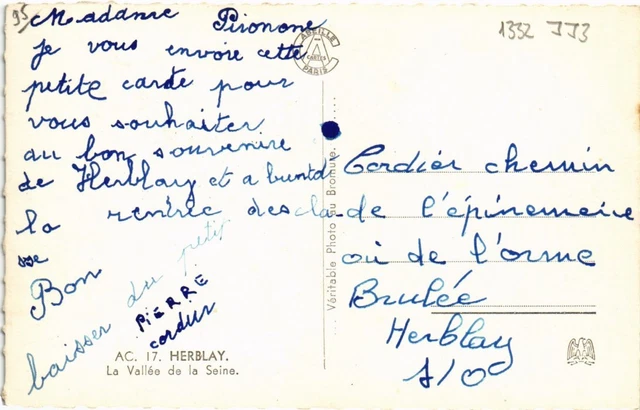 95
Madame Pironone
je vous envoie cette
petite carte pour
vous souhaiter
au bon souvenire
de Herblay et a bientd
la rentrée des cla
sse
Bon
baisser du petit
PIERRE
cordier
AC. 17. HERBLAY.
La Vallée de la Seine.
ABEILLE
CARTES
PARIS
Véritable Photo au Bromure.
1332 JJ3
Cordier chemin
de l'épinemeire
où de l'orme
Brulée
Herblay
S/O